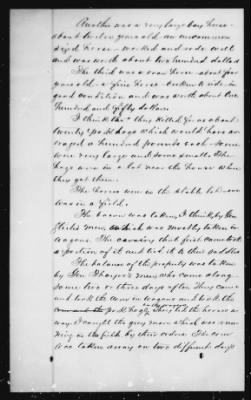 Another was a very large bay horse
about twelve years old an uncommon
sized horse – worked and rode well
and was worth about two hundred dollars
The third was a roan horse – about five
years old – a fine horse – in
good condition and was worth about one
hundred and fifty dollars.
I think the – they killed for us about
twenty pork hogs which would have av-
eraged a hundred pounds each – some
were very large and some small. The
hogs were in a lot near the house when
they got them.
The horses were in the stable but one
was in a field.
The bacon was taken I think by Gen
men, which was mostly taken in
wagons. The cavalry that first came took
a portion of it and tied it to their saddles
The balance of the property was taken
by Gen men who came along
some two or three days after. They came
and took the corn in wagons and took the
pork hogs. They led the horses a-
way. I caught the gray mare which was run-
ning in the field, by their orders. The corn
was taken away on two different days